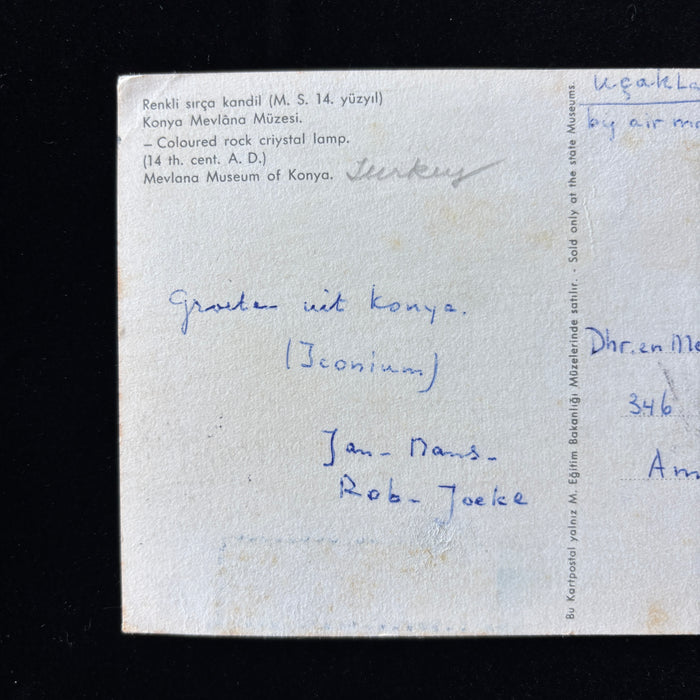 Renkli sırça kandil (M. S. 14. yüzyıl)
Konya Mevlâna Müzesi.
– Coloured rock criystal lamp.
(14 th. cent. A. D.)
Mevlana Museum of Konya. Turkey
Groeten uit Konya.
(Iconium)
Jan - Mans -
Rob - Joeke
Bu Kartpostal yalnız M. Eğitim Bakanlığı Müzelerinde satılır. - Sold only at the state Museums.
uçakla
by air ma
Dhr. en Me
346
Am